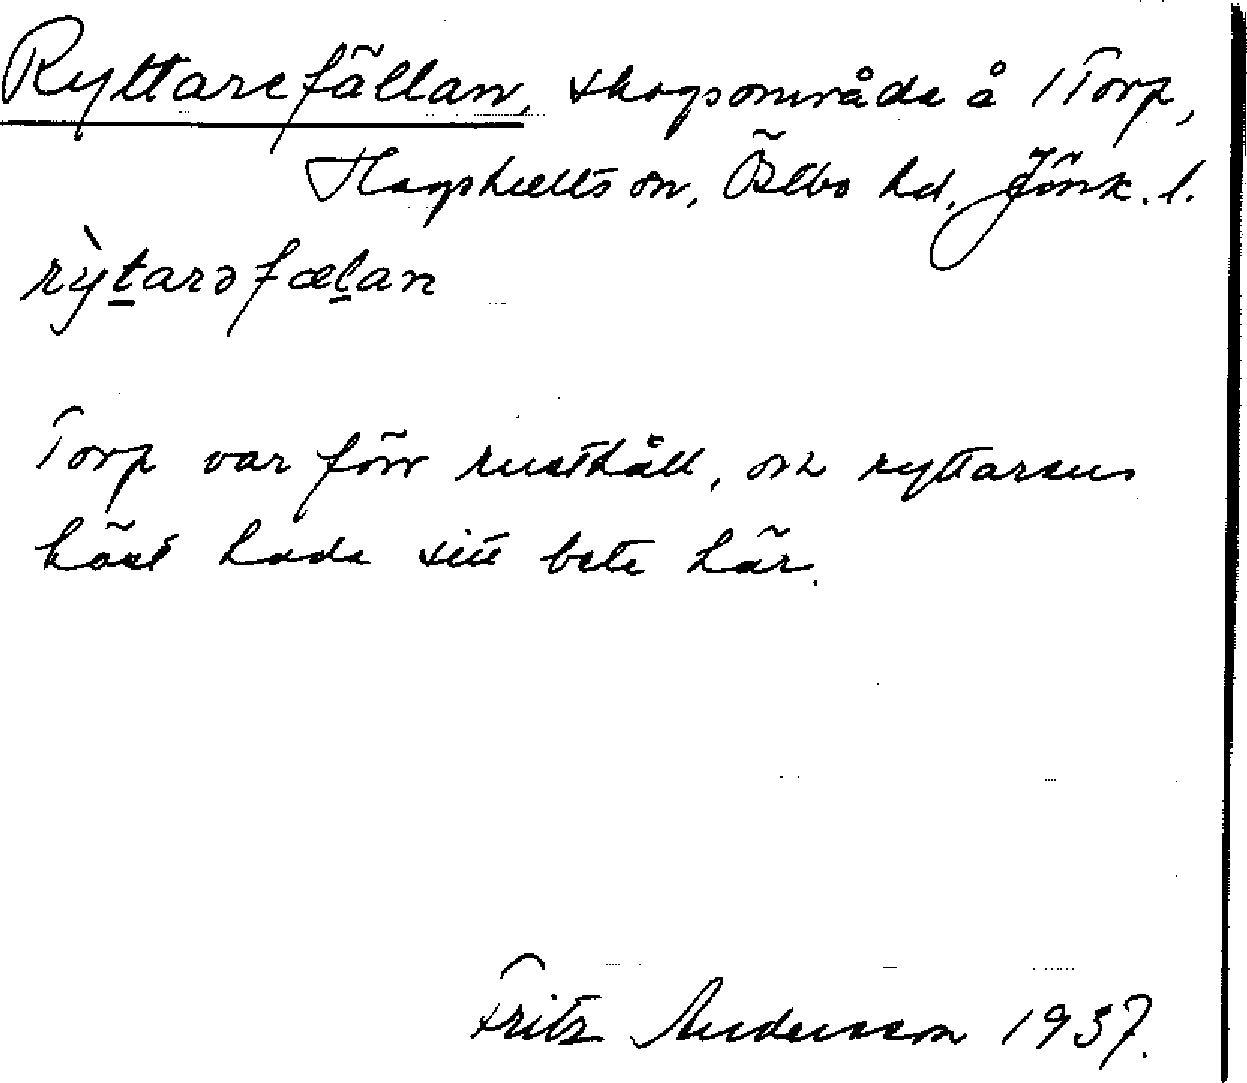 Ryttarefällan, skogsområde å Torp,
Hagshults sn, Östbo hd, Jönk. l.
rỳtarəfælan
Torp var förr rusthåll, och ryttarens
häst hade sitt bete här.
Fritz Andersson 1937.